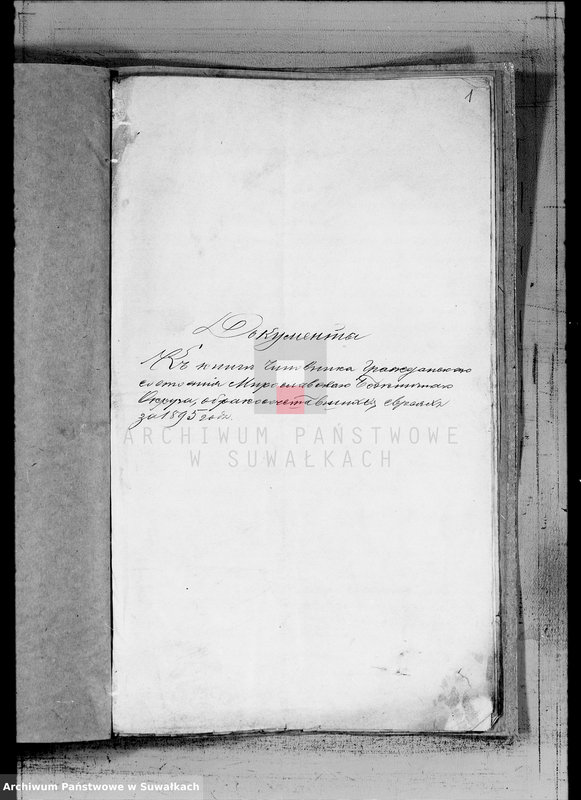 1
Документы
Къ книги Чиновника Гражданскаго
состоянія Мирославскаго Божничнаго
Округа, о бракосочетавшихся евреяхъ
за 1895 годъ.
ARCHIWUM PAŃSTWOWE
W SUWAŁKACH
Archiwum Państwowe w Suwałkach